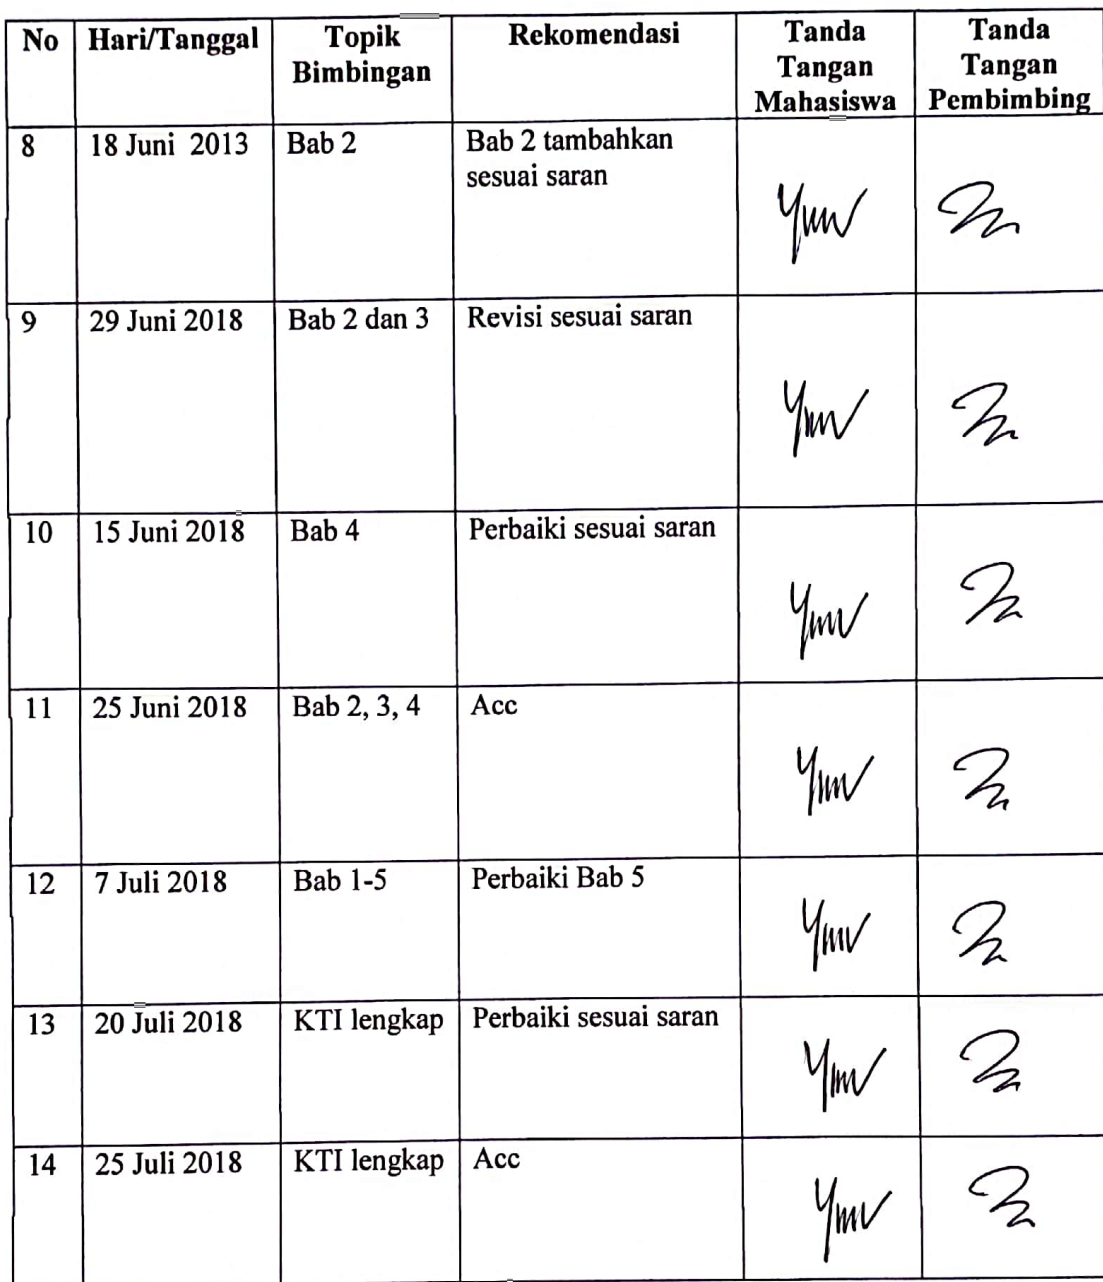 No Hari/Tanggal Topik Bimbingan Rekomendasi Tanda Tangan Mahasiswa Tanda Tangan Pembimbing
8 18 Juni 2013 Bab 2 Bab 2 tambahkan sesuai saran
9 29 Juni 2018 Bab 2 dan 3 Revisi sesuai saran
10 15 Juni 2018 Bab 4 Perbaiki sesuai saran
11 25 Juni 2018 Bab 2, 3, 4 Acc
12 7 Juli 2018 Bab 1-5 Perbaiki Bab 5
13 20 Juli 2018 KTI lengkap Perbaiki sesuai saran
14 25 Juli 2018 KTI lengkap Acc